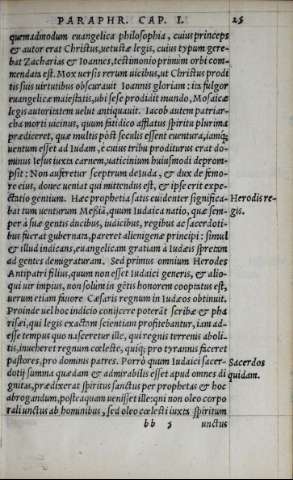 PARAPHR. CAP. I. 25
quemadmodum euangelica philosophia, cuius princeps
& autor erat Christus, uetustæ legis, cuius typum gere-
bat Zacharias & Ioannes, testimonio primũ orbi com-
mendata est. Mox uersis rerum uicibus, ut Christus prodi
tis suis uirtutibus obscurauit Ioannis gloriam: ita fulgor
euangelicæ maiestatis, ubi sese prodidit mundo, Mosaicæ
legis autoritatem uelut antiquauit. Iacob autem patriar-
cha morti uicinus, quum fatidico afflatus spiritu plurima
prædiceret, quæ multis pòst seculis essent euentura, iamq́;
uentum esset ad Iudam, è cuius tribu proditurus erat do-
minus Iesus iuxta carnem, uaticinium huiusmodi deprom-
psit: Non auferetur sceptrum de Iuda, & dux de femo-
re eius, donec ueniat qui mittendus est, & ipse erit expe-
ctatio gentium. Hæc prophetia satis euidenter significa-
bat tum uenturum Messiã, quum Iudaica natio, quæ sem-
per à suæ gentis ducibus, iudicibus, regibus ac sacerdoti-
bus fuerat gubernata, pareret alienigenæ principi: simul
& illud indicans, euangelicam gratiam à Iudæis spretam
ad gentes demigraturam. Sed primus omnium Herodes
Antipatri filius, quum non esset Iudaici generis, & alio-
qui uir impius, non solùm in gẽtis honorem cooptatus est,
uerum etiam fauore Cæsaris regnum in Iudæos obtinuit.
Proinde uel hoc indicio conijcere poterāt scribæ & pha
risæi, qui legis exactam scientiam profitebantur, iam ad-
esse tempus quo nasceretur ille, qui regnis terrenis aboli-
tis, inueheret regnum cœleste, quiq; pro tyrannis faceret
pastores, pro dominis patres. Porrò quum Iudaici sacer-
dotij summa quædam & admirabilis esset apud omnes di
gnitas, prædixerat spiritus sanctus per prophetas & hoc
abrogandum, posteaquam uenisset ille: qui non oleo corpo
rali unctus ab hominibus, sed oleo cœlesti iuxta spiritum
bb 5 unctus
Herodis re-
gis.
Sacerdos
quidam.